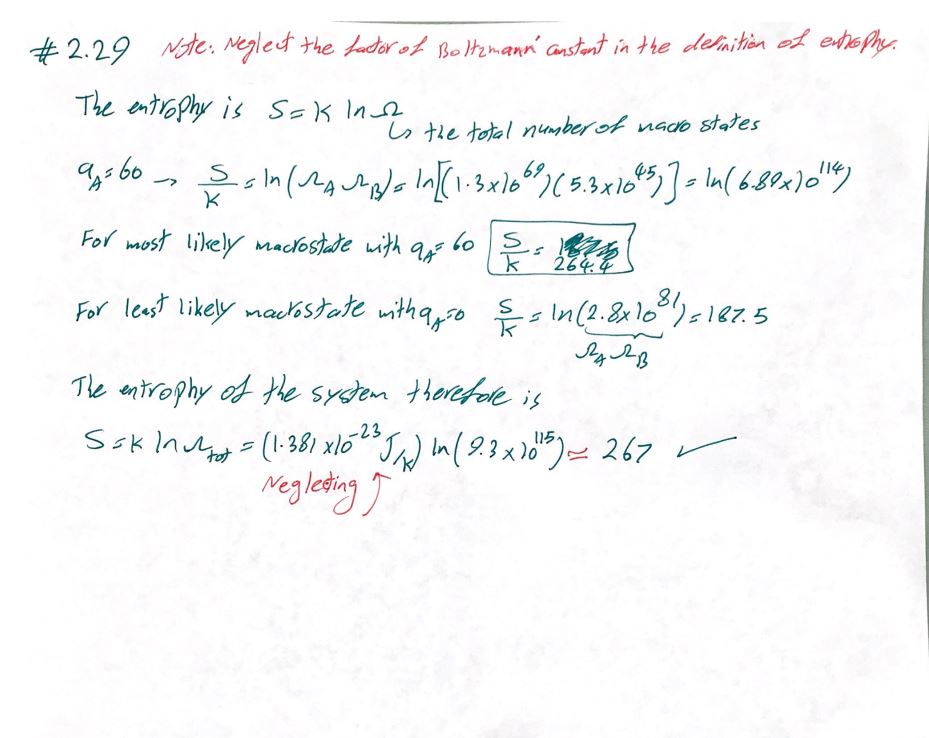 # 2.29 Note: Neglect the factor of Boltzmann' constant in the definition of entrophy.
The entrophy is S = k ln Ω
↳ the total number of macro states
q_A = 60 → S/k = ln(Ω_A Ω_B) = ln[(1.3x10^69)(5.3x10^45)] = ln(6.89x10^114)
For most likely macrostate with q_A = 60 S/k = 264.4
For least likely macrostate with q_A = 0 S/k = ln(2.8x10^81) = 187.5
Ω_A Ω_B
The entrophy of the system therefore is
S = k ln Ω_tot = (1.381 x10^-23 J/k) ln(9.3x10^115) ≃ 267 ✓
Neglecting ↑